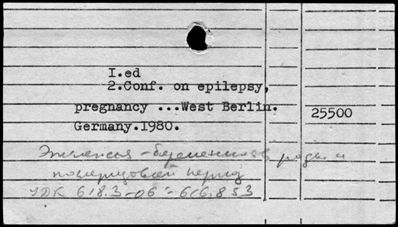 I.ed
2.Conf. on epilepsy,
pregnancy ...West Berlin.
25500
Germany.1980.
Эпилепсия - беременность роды и
послеродовый период
УДК 618.3-06 - 616.853